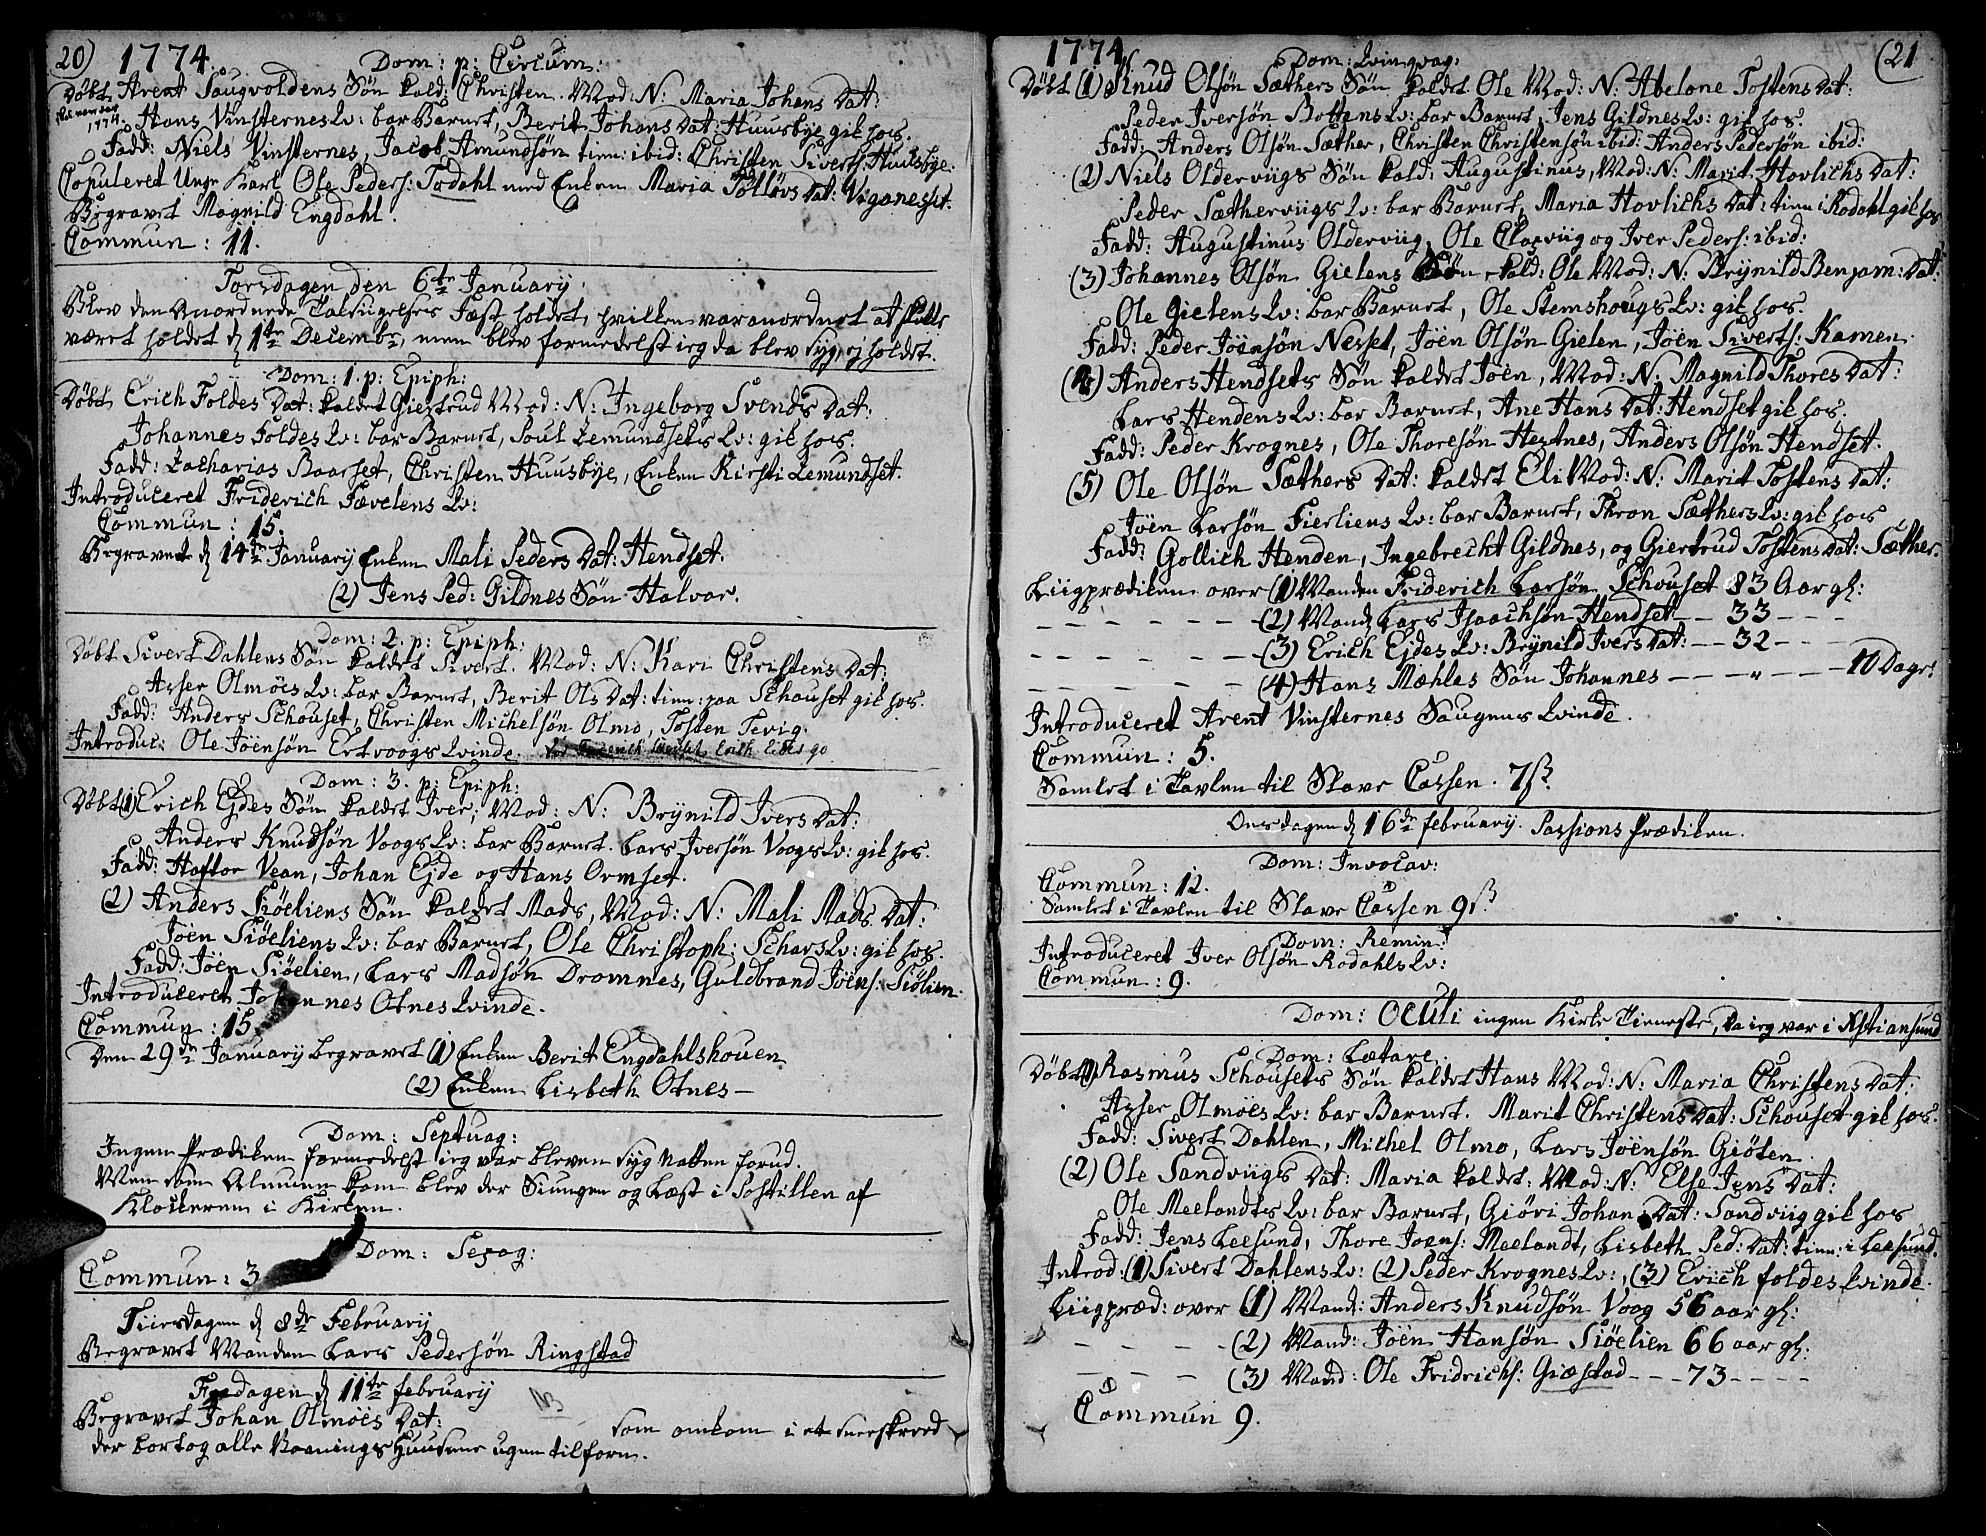 20) 1774. Dom: p: Circum:
Døbt Arent Saugvoldens Søn kald: Christen. Mod: N: Maria Johans Dat:
1774. Hans Vinsternes Qv: bar Barnet, Berit Johans Dat: Huusbye gik hos.
Fadd: Niels Vinsternes, Jacob Amundsøn tien: ibid: Christen Siverts: Huusbye.
Copuleret Unge Karl Ole Peders: Todahl med Enken Maria Tolløvs Dat: Vaganeset.
Begravet Magnild Engdahl.
Commun: 11.
Torsdagen den 6te January.
Blev den Anordnede Taksigelses Fæst holdet, hvilken var anordnet at skulle
været holdet d 1te Decembr, men blev formedelst ieg da blev syg, ej holdet.
Dom: 1. p: Epiph:
Døbt Erich Foldes Dat: kaldet Giertrud Mod: N: Ingeborg Svends Dat:
Johannes Foldes Qv: bar Barnet, Poul Lemundsets Qv: gik hos.
Fadd: Zacharias Baarset, Christen Huusbye, Enken Kirsti Lemundset.
Introduceret Friderich Tævelens Qv:
Commun: 15.
Begravet d 14de January Enken Mali Peders Dat: Hendset.
(2) Jens Ped: Gildnes Søn Halvor.
Dom: 2. p: Epiph:
Døbt Sivert Dahlens Søn kaldet Sivert. Mod: N: Kari Christens Dat:
Asser Olmöes Qv: bar Barnet, Berit Ols Dat: tien: paa Schouset gik hos.
Fadd: Anders Schouset, Christen Michelsøn Olmo, Tosten Tevig.
Introduc: Ole Jöensøn Ertvoogs Qvinde.
Dom: 3. p: Epiph:
Døbt (1) Erich Ejdes Søn kaldet Iver, Mod: N: Brÿnild Ivers Dat:
Anders Knudsøn Voogs Qv: bar Barnet. Lars Iversøn Voogs Qv: gik hos.
Fadd: Haftor Vean, Johan Ejde og Hans Ormset.
(2) Anders Siöeliens Søn kaldet Mads, Mod: N: Mali Mads Dat:
Jöen Siöeliens Qv: bar Barnet, Ole Christoph: Schars Qv: gik hos.
Fadd: Jöen Siöelien, Lars Madsøn Dromnes, Guldbrand Jöens: Siölien.
Introduceret Johannes Otnes Qvinde.
Commun: 15
Den 29de January begravet (1) Enken Berit Engdahlshouen
(2) Enken Lisbeth Otnes —
Dom: Septuag:
Ingen Prædiken formedelst ieg var bleven syg Natten forud.
Men som Almuen kom blev der Siungen og Læst i Postillen af
Klockeren i Kirken.
Dom: Sexag:
Commun: 3
Tiirsdagen d 8de Februarij
Begravet Manden Lars Pedersøn Ringstad
Fredagen d 11te februarij
Begravet Johan Olmöes Dat: som omkom i et sneeskreed
der bortog alle Vaanings Huusene ugen tilforn.
1774. Dom: Qvinqvag: (21
Døbt (1) Knud Olsøn Sæthers Søn kaldet Ole Mod: N: Abelone Tostens Dat:
Peder Iversøn Bottens Qv: bar Barnet, Jens Gildnes Qv: gik hos.
Fadd: Anders Olsøn Sæther, Christen Christensøn ibid: Anders Pedersøn ibid:
(2) Niels Olderviigs Søn kald: Augustinus, Mod: N: Marit Hovlichs Dat:
Peder Sætherviigs Qv: bar Barnet, Maria Hovlichs Dat: tien: i Rodahl gik hos
Fadd: Augustinus Olderviig, Ole Clasviig og Iver Peders: ibid:
(3) Johannes Olsøn Gielens Søn kald: Ole Mod: N: Brÿnild Benjam: Dat:
Ole Gielens Qv: bar Barnet, Ole Stemshougs Qv: gik hos.
Fadd: Peder Jöensøn Nesset, Jöen Olsøn Gielen, Jöen Siverts: Kamen.
(4) Anders Hendsets Søn kaldet Jöen, Mod: N: Magnild Thores Dat:
Lars Hendens Qv: bar Barnet, Ane Hans Dat: Hendset gik hos.
Fadd: Peder Krognes, Ole Thoresøn Hestnes, Anders Olsøn Hendset.
(5) Ole Olsøn Sæthers Dat: kaldet Eli Mod: N: Marit Tostens Dat:
Jöen Larsøn Fierliens Qv: bar Barnet, Thron Sæthers Qv: gik hos
Fadd: Gollich Henden, Ingebrecht Gildnes, og Giertrud Tostens Dat: Sæther.
Liigprædiken over (1) Manden Friderich Larsøn Schouset 83 Aar gl:
— — — (2) Mand: Lars Isaachsøn Hendset — 33 — —
— — — (3) Erich Ejdes Qv: Brÿnild Ivers Dat: — 32 —
— — — (4) Hans Mæhles Søn Johannes — — " — — 10 Dage.
Introduceret Arent Vinsternes Saugens Qvinde.
Commun: 5.
Samlet i Tavlen til Slave Cassen. 7 ß.
Onsdagen d 16de februarij. Passions Prædiken.
Dom: Invocav:
Commun: 12.
Samlet i Tavlen til Slave Cassen 9 ß.
Dom: Remin:
Introduceret Iver Olsøn Rodahls Qv:
Commun: 9.
Dom: Oculi ingen Kirke Tieneste, da ieg var i Xstiansund
Dom: Lætare.
Døbt (1) Rasmus Schousets Søn kaldet Hans Mod: N: Maria Christens Dat:
Asser Olmöes Qv: bar Barnet. Marit Christens Dat: Schouset gik hos.
Fadd: Sivert Dahlen, Michel Olmo, Lars Jöensøn Giöten.
(2) Ole Sandviigs Dat: Maria kaldet. Mod: N: Else Jens Dat:
Ole Meelandts Qv: bar Barnet, Giöri Johans Dat: Sandviig gik hos
Fadd: Jens Leesund, Thore Joens: Meelandt, Lisbeth Ped: Dat: tien: i Leesund.
Introd: (1) Sivert Dahlens Qv: (2) Peder Krognes Qv:, (3) Erich foldes Qvinde.
Liigpræd: over (1) Mand: Anders Knudsøn Voog 56 aar gl:
— — — (2) Mand: Jöen Hansøn Siöelien 66 aar gl:
— — — (3) Mand: Ole Fridrichs: Giæstad — — 73 — —
Commun 9.